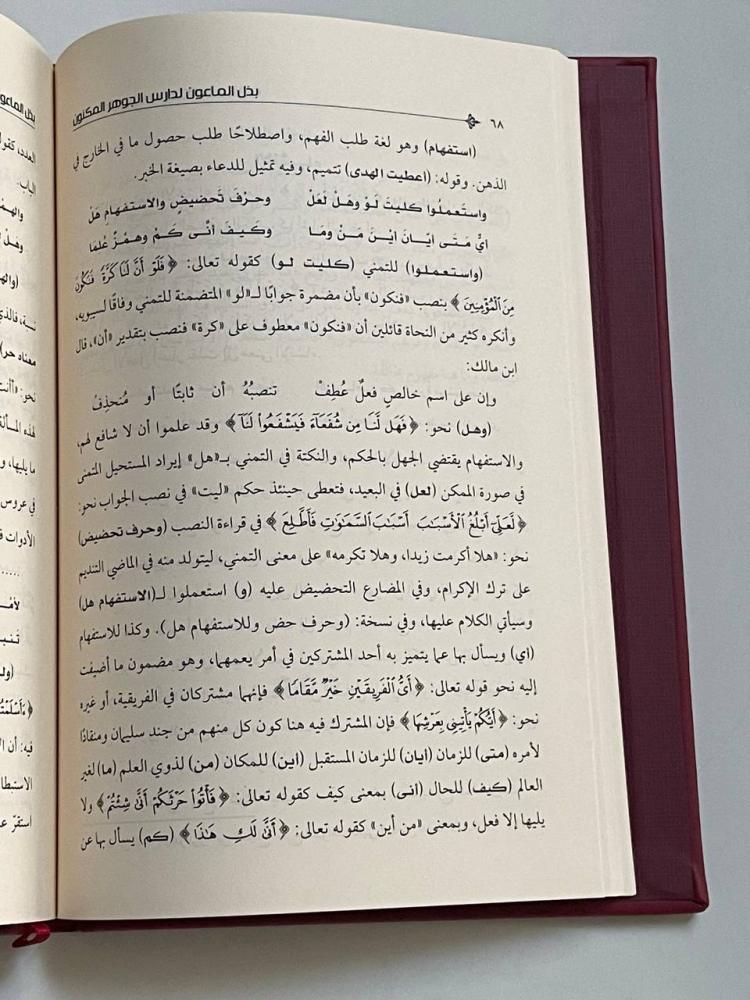 بذل الماعون لدارس الجوهر المكنون
٦٨
(استفهام) وهو لغة طلب الفهم، واصطلاحًا طلب حصول ما في الخارج في
الذهن. وقوله: (اعطيت الهدى) تتميم، وفيه تمثيل للدعاء بصيغة الخبر.
واستَعملُوا كليتَ لَوْ وهَلْ لَعَلْ وحرْفَ تَحضيضٍ والاستفهامِ هَلْ
ايُّ مَتَى ايّانَ ايْنَ مَنْ وَمَا وكَيفَ أنّى كَمْ وهَمْزٌ عُلمَا
(واستعملوا) للتمني (كليت لو) كقوله تعالى: ﴿فَلَوْ أَنَّ لَنَا كَرَّةً فَنَكُونَ
مِنَ الْمُؤْمِنِينَ﴾ بنصب «فنكون» بأن مضمرة جوابًا لـ«لو» المتضمنة للتمني وفاقًا لسيويه،
وأنكره كثير من النحاة قائلين أن «فنكون» معطوف على «كرة» فنصب بتقدير «أن»، قال
ابن مالك:
وإن على اسم خالصٍ فعلٌ عُطِفْ تنصبُهُ أن ثابتًا أو مُنحذِفْ
(وهل) نحو: ﴿فَهَل لَّنَا مِن شُفَعَآءَ فَيَشْفَعُوا۟ لَنَآ﴾ وقد علموا أن لا شافع لهم،
والاستفهام يقتضي الجهل بالحكم، والنكتة في التمني بـ«هل» إيراد المستحيل التمنى
في صورة الممكن (لعل) في البعيد، فتعطى حينئذ حكم «ليت» في نصب الجواب نحو:
﴿لَّعَلِّىٓ أَبْلُغُ الْأَسْبَٰبَ أَسْبَٰبَ السَّمَٰوَٰتِ فَأَطَّلِعَ﴾ في قراءة النصب (وحرف تحضيض)
نحو: «هلا أكرمت زيدا، وهلا تكرمه» على معنى التمني، ليتولد منه في الماضي التنديم
على ترك الإكرام، وفي المضارع التحضيض عليه (و) استعملوا لـ(الاستفهام هل)
وسيأتي الكلام عليها، وفي نسخة: (وحرف حض وللاستفهام هل). وكذا للاستفهام
(اي) ويسأل بها عما يتميز به أحد المشتركين في أمر يعمهما، وهو مضمون ما أضيفت
إليه نحو قوله تعالى: ﴿أَىُّ الْفَرِيقَيْنِ خَيْرٌ مَّقَامًا﴾ فإنهما مشتركان في الفريقية، أو غيره
نحو: ﴿أَيُّكُمْ يَأْتِينِى بِعَرْشِهَا﴾ فإن المشترك فيه هنا كون كل منهم من جند سليمان ومنقادًا
لأمره (متى) للزمان (ايان) للزمان المستقبل (اين) للمكان (من) لذوي العلم (ما) لغير
العالم (كيف) للحال (انى) بمعنى كيف كقوله تعالى: ﴿فَأْتُوا۟ حَرْثَكُمْ أَنَّىٰ شِئْتُمْ﴾ ولا
يليها إلا فعل، وبمعنى «من أين» كقوله تعالى: ﴿أَنَّىٰ لَكِ هَٰذَا﴾ (كم) يسأل بها عن